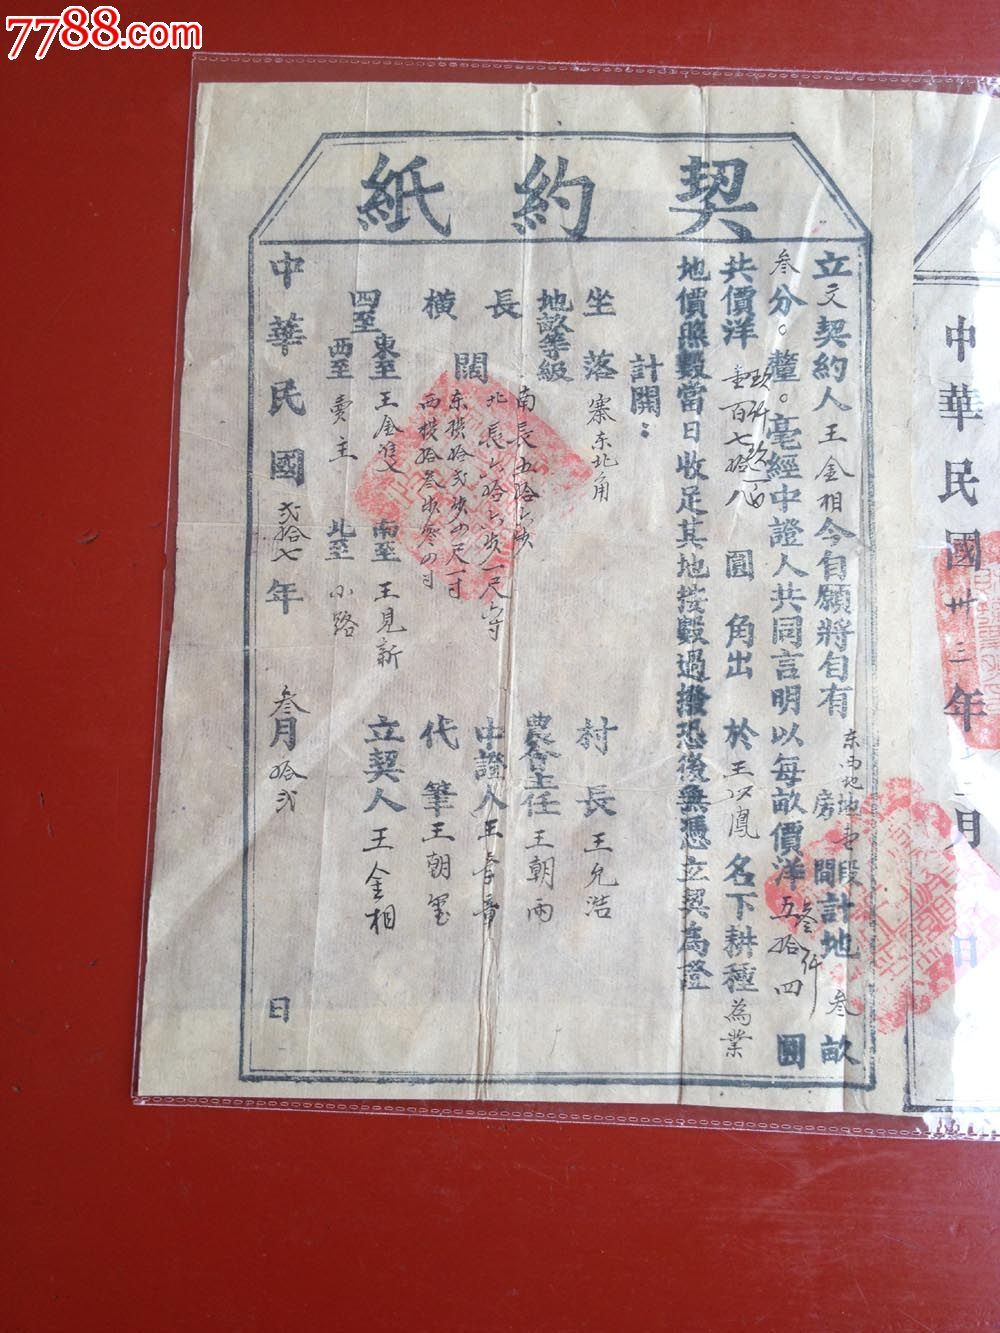 7788.com
契約紙
立文契約人王金相今自願將自有東西地地壹段計地叁畝
房間
叁分。釐。毫經中證人共同言明以每畝價洋五拾四圓
叁仟
共價洋壹百七拾八圓角出於王以鳳名下耕種為業
玖仟
地價照數當日收足其地按數過撥恐後無憑立契為證
計開：
坐落寨东北角
地畝等級
長南長五拾六步
闊北長六拾六步一尺
橫
东橫拾弍步四尺一寸
西橫拾叁步零四寸
四至
東至王金進
南至王見新
西至賣主
北至小路
村長王允浩
農會主任王朝雨
中證人王孝章
代筆王朝璽
立契人王金相
中華民國弍拾七年叁月拾弍日
中華民國卅三年二月日